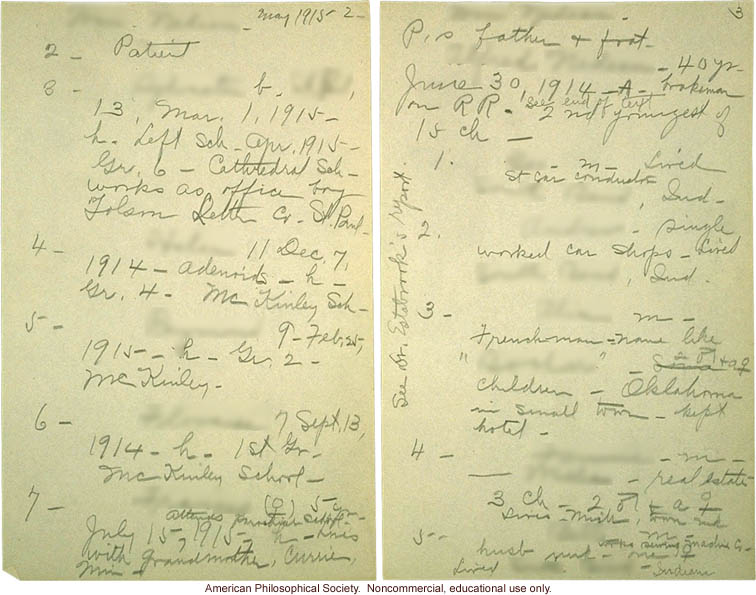 May 1915 2-
2 - Patient
3 - b.
13, Mar. 1, 1915 -
h. Left Sch - Apr. 1915 -
Gr. 6 - Cathedral Sch -
works as office boy
Folsom Letter Co - St. Paul -
4 - 11 Dec. 7,
1914 - adenoids - h -
Gr. 4 - McKinley Sch -
5 - 9 - Feb. 25,
1915 - h - Gr. 2 -
McKinley -
6 - 7 Sept. 13,
1914 - h - 1st Gr -
McKinley School -
7 - (♀) 5 -
attends parochial School -
July 15, 1915, - h - lives
with grandmother, Currie,
Minn -
3
P,s father & frat -
- 40 yr -
June 30, 1914 - A - brakeman
on RR - see end of text 2nd youngest of
15 ch -
1. - m - Lived
St car conductor
, Ind -
2. - single
worked car shops - Lived
, Ind.
See Dr. Estabrook's report.
3 - m -
Frenchman - name like
" " - 2 ♂ + a ♀
children - Oklahoma
in small town - kept
hotel -
4 - - m -
- real estate -
3 ch - 2 ♂ + a ♀
Lives - Mich, town unk
5 - - m -
husb unk - sewing machine Co -
Lived - Indiana
American Philosophical Society. Noncommercial, educational use only.